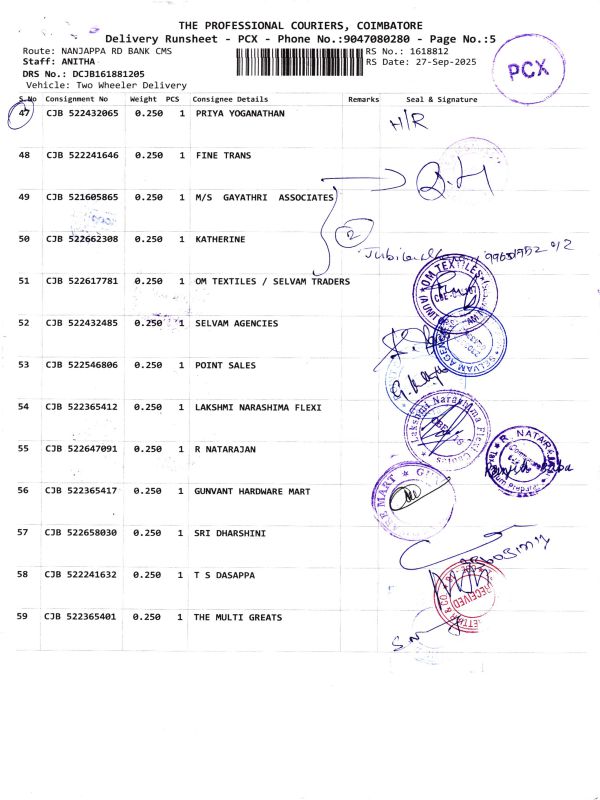 THE PROFESSIONAL COURIERS, COIMBATORE
Delivery Runsheet - PCX - Phone No.:9047080280 - Page No.:5
Route: NANJAPPA RD BANK CMS
RS No.: 1618812
Staff: ANITHA
RS Date: 27-Sep-2025
DRS No.: DCJB161881205
Vehicle: Two Wheeler Delivery
PCX
S.No Consignment No Weight PCS Consignee Details Remarks Seal & Signature
47 CJB 522432065 0.250 1 PRIYA YOGANATHAN H/R
48 CJB 522241646 0.250 1 FINE TRANS
49 CJB 521605865 0.250 1 M/S GAYATHRI ASSOCIATES
50 CJB 522662308 0.250 1 KATHERINE 2
51 CJB 522617781 0.250 1 OM TEXTILES / SELVAM TRADERS OM TEXTILES
52 CJB 522432485 0.250 1 SELVAM AGENCIES SELVAM AGENC
53 CJB 522546806 0.250 1 POINT SALES
54 CJB 522365412 0.250 1 LAKSHMI NARASHIMA FLEXI Lakshmi Narasimma Flexi
55 CJB 522647091 0.250 1 R NATARAJAN R NATARAJAN
56 CJB 522365417 0.250 1 GUNVANT HARDWARE MART MART
57 CJB 522658030 0.250 1 SRI DHARSHINI
58 CJB 522241632 0.250 1 T S DASAPPA RECEIVED
59 CJB 522365401 0.250 1 THE MULTI GREATS